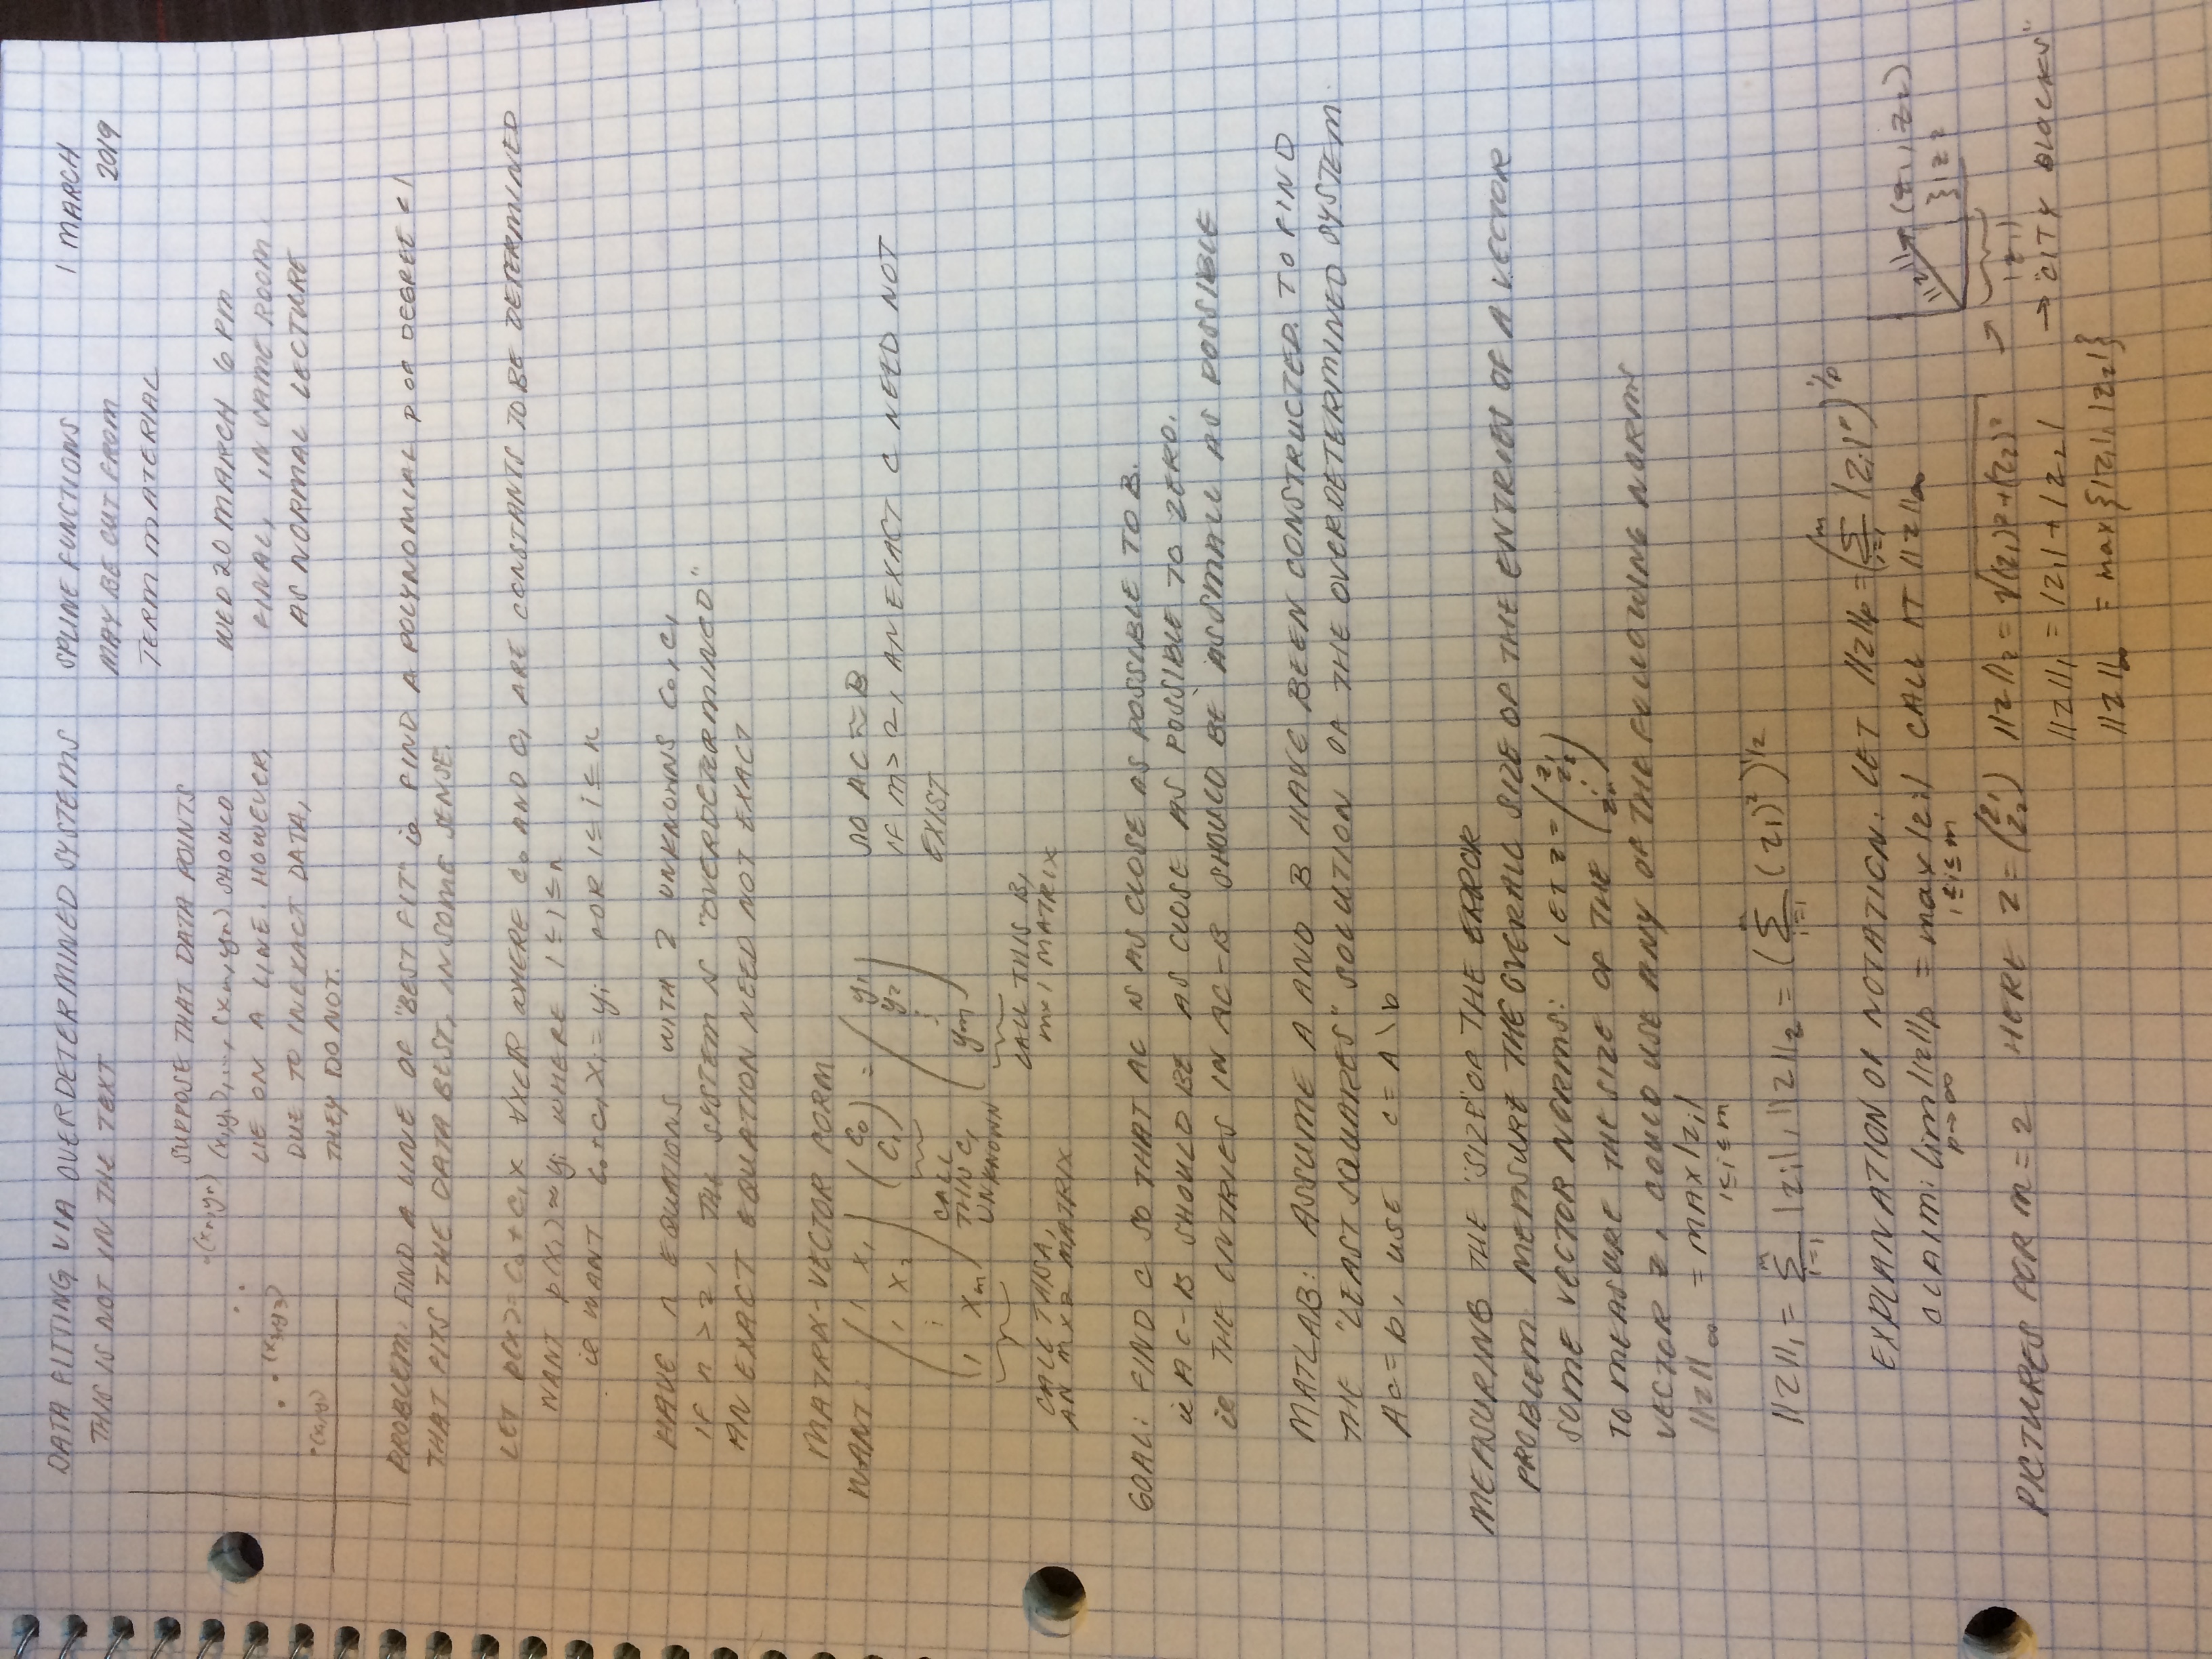 DATA FITTING VIA OVERDETERMINED SYSTEMS
THIS IS NOT IN THE TEXT
SPLINE FUNCTIONS
MAY BE CUT FROM
TERM MATERIAL
1 MARCH
2019
SUPPOSE THAT DATA POINTS
(x₁,y₁),..., (xₙ,yₙ) SHOULD
LIE ON A LINE. HOWEVER,
DUE TO INEXACT DATA,
THEY DO NOT.
(xₙ,yₙ)
(x₃,y₃)
(x₁,y₁)
WED 20 MARCH 6 PM
FINAL, IN SAME ROOM
AS NORMAL LECTURE
PROBLEM: FIND A LINE OF "BEST FIT" ie FIND A POLYNOMIAL p OF DEGREE ≤ 1
THAT FITS THE DATA BEST, IN SOME SENSE.
LET p(x) = c₀ + c₁x ∀x∈ℝ WHERE c₀ AND c₁ ARE CONSTANTS TO BE DETERMINED
WANT p(xᵢ) ≈ yᵢ WHERE 1 ≤ i ≤ n
ie WANT c₀ + c₁xᵢ = yᵢ FOR 1 ≤ i ≤ n
HAVE n EQUATIONS WITH 2 UNKNOWNS c₀, c₁
IF n > 2, THE SYSTEM IS "OVERDETERMINED"
AN EXACT EQUATION NEED NOT EXACT
MATRIX-VECTOR FORM
WANT: ( 1 x₁ ) ( c₀ ) = ( y₁ )
( 1 x₂ ) ( c₁ ) ( y₂ )
⋮ ⋮
( 1 xₘ ) ( yₘ )
CALL
THIS C,
UNKNOWN
CALL THIS A,
AN m×2 MATRIX
CALL THIS B,
m×1 MATRIX
SO AC ≈ B
IF m > 2, AN EXACT C NEED NOT
EXIST
GOAL: FIND C SO THAT AC IS AS CLOSE AS POSSIBLE TO B.
ie AC-B SHOULD BE AS CLOSE AS POSSIBLE TO ZERO.
ie THE ENTRIES IN AC-B SHOULD BE AS SMALL AS POSSIBLE
MATLAB: ASSUME A AND B HAVE BEEN CONSTRUCTED. TO FIND
THE "LEAST SQUARES" SOLUTION OF THE OVERDETERMINED SYSTEM
Ac = b, USE c = A\b
MEASURING THE "SIZE" OF THE ERROR
PROBLEM: MEASURE THE OVERALL SIZE OF THE ENTRIES OF A VECTOR
SOME VECTOR NORMS: LET z = ( z₁ z₂ ⋮ zₘ )
TO MEASURE THE SIZE OF THE
VECTOR z, COULD USE ANY OF THE FOLLOWING NORMS
||z||∞ = MAX |zᵢ|
1≤i≤m
||z||₁ = Σᵢ₌₁ᵐ |zᵢ|, ||z||₂ = (Σᵢ₌₁ᵐ (zᵢ)²)^1/2
EXPLANATION OF NOTATION: LET ||z||ₚ = (Σᵢ₌₁ᵐ |zᵢ|ᵖ)^1/p
CLAIM: lim ||z||ₚ = max |zᵢ| CALL IT ||z||∞
p→∞ 1≤i≤m
||z||
(z₁, z₂)
} |z₂
|z₁|
PICTURES FOR m = 2 HERE z = ( z₁ z₂ ) ||z||₂ = √(z₁)²+(z₂)²
||z||₁ = |z₁| + |z₂| → "CITY BLOCKS"
||z||∞ = max {|z₁|, |z₂|}